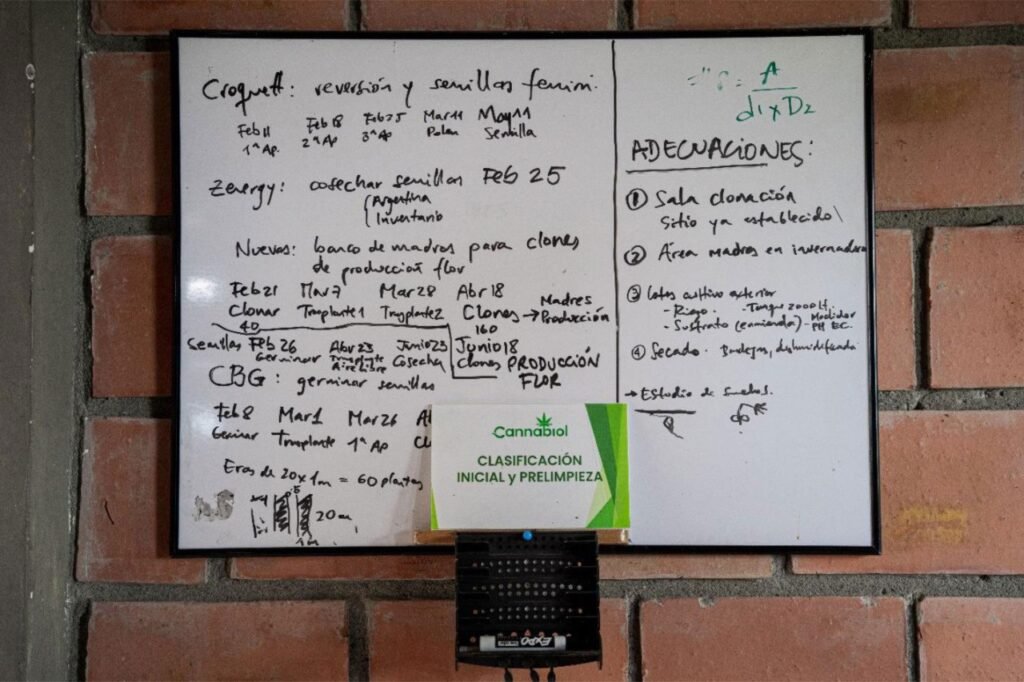 Croquett: reversión y semillas femini.
Feb 11 Feb 18 Feb 25 Mar 11 May 11
1ª Ap. 2ª Ap 3ª Ap Polen Semilla
Zenergy: cosechar semillas Feb 25
Argentina
Inventario
Nuevos: banco de madres para clones
de producción flor
Feb 21 Mar 7 Mar 28 Abr 18
Clonar Trasplante 1 Trasplante 2 Clones → Madres Producción
40 160
Semillas Feb 26 Abr 23 Junio 23 Junio 18
Germinar Trasplante Aire libre Cosecha Clones PRODUCCIÓN
FLOR
CBG: germinar semillas
Feb 8 Mar 1 Mar 26
Germinar Trasplante 1ª Ap
Eras de 20 x 1m = 60 plantas
20 m
1m
= A
d1 x D2
ADECUACIONES:
① Sala clonación
Sitio ya establecido
② Área madres en invernadero
③ Lotes cultivo exterior
- Riego - Tanque 2000 Lt.
- Sustrato (enmienda) - Medidor
PH EC.
④ Secado. Bandejas, deshumidificador
→ Estudio de suelos.
Cannabiol
CLASIFICACIÓN
INICIAL y PRELIMPIEZA
EXPO